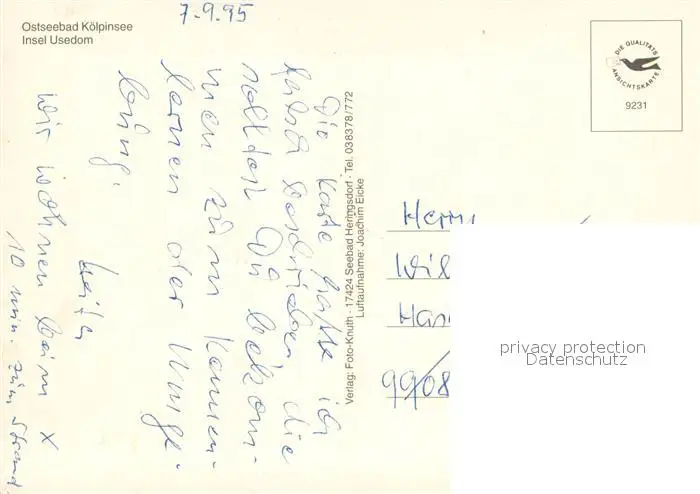 Ostseebad Kölpinsee
Insel Usedom
7.9.95
Die Karte hatte ich
schon die
solltest Du bekom-
men zum Kennen-
lernen der Umge-
bung.
wir wohnen beim x
10 min. zum Strand
Verlag: Foto-Knuth · 17424 Seebad Heringsdorf · Tel. 038378/772
Luftaufnahme: Joachim Eicke
DIE QUALITÄTS
ANSICHTSKARTE
9231
Herrn
Wil
Han
9908
privacy protection
Datenschutz